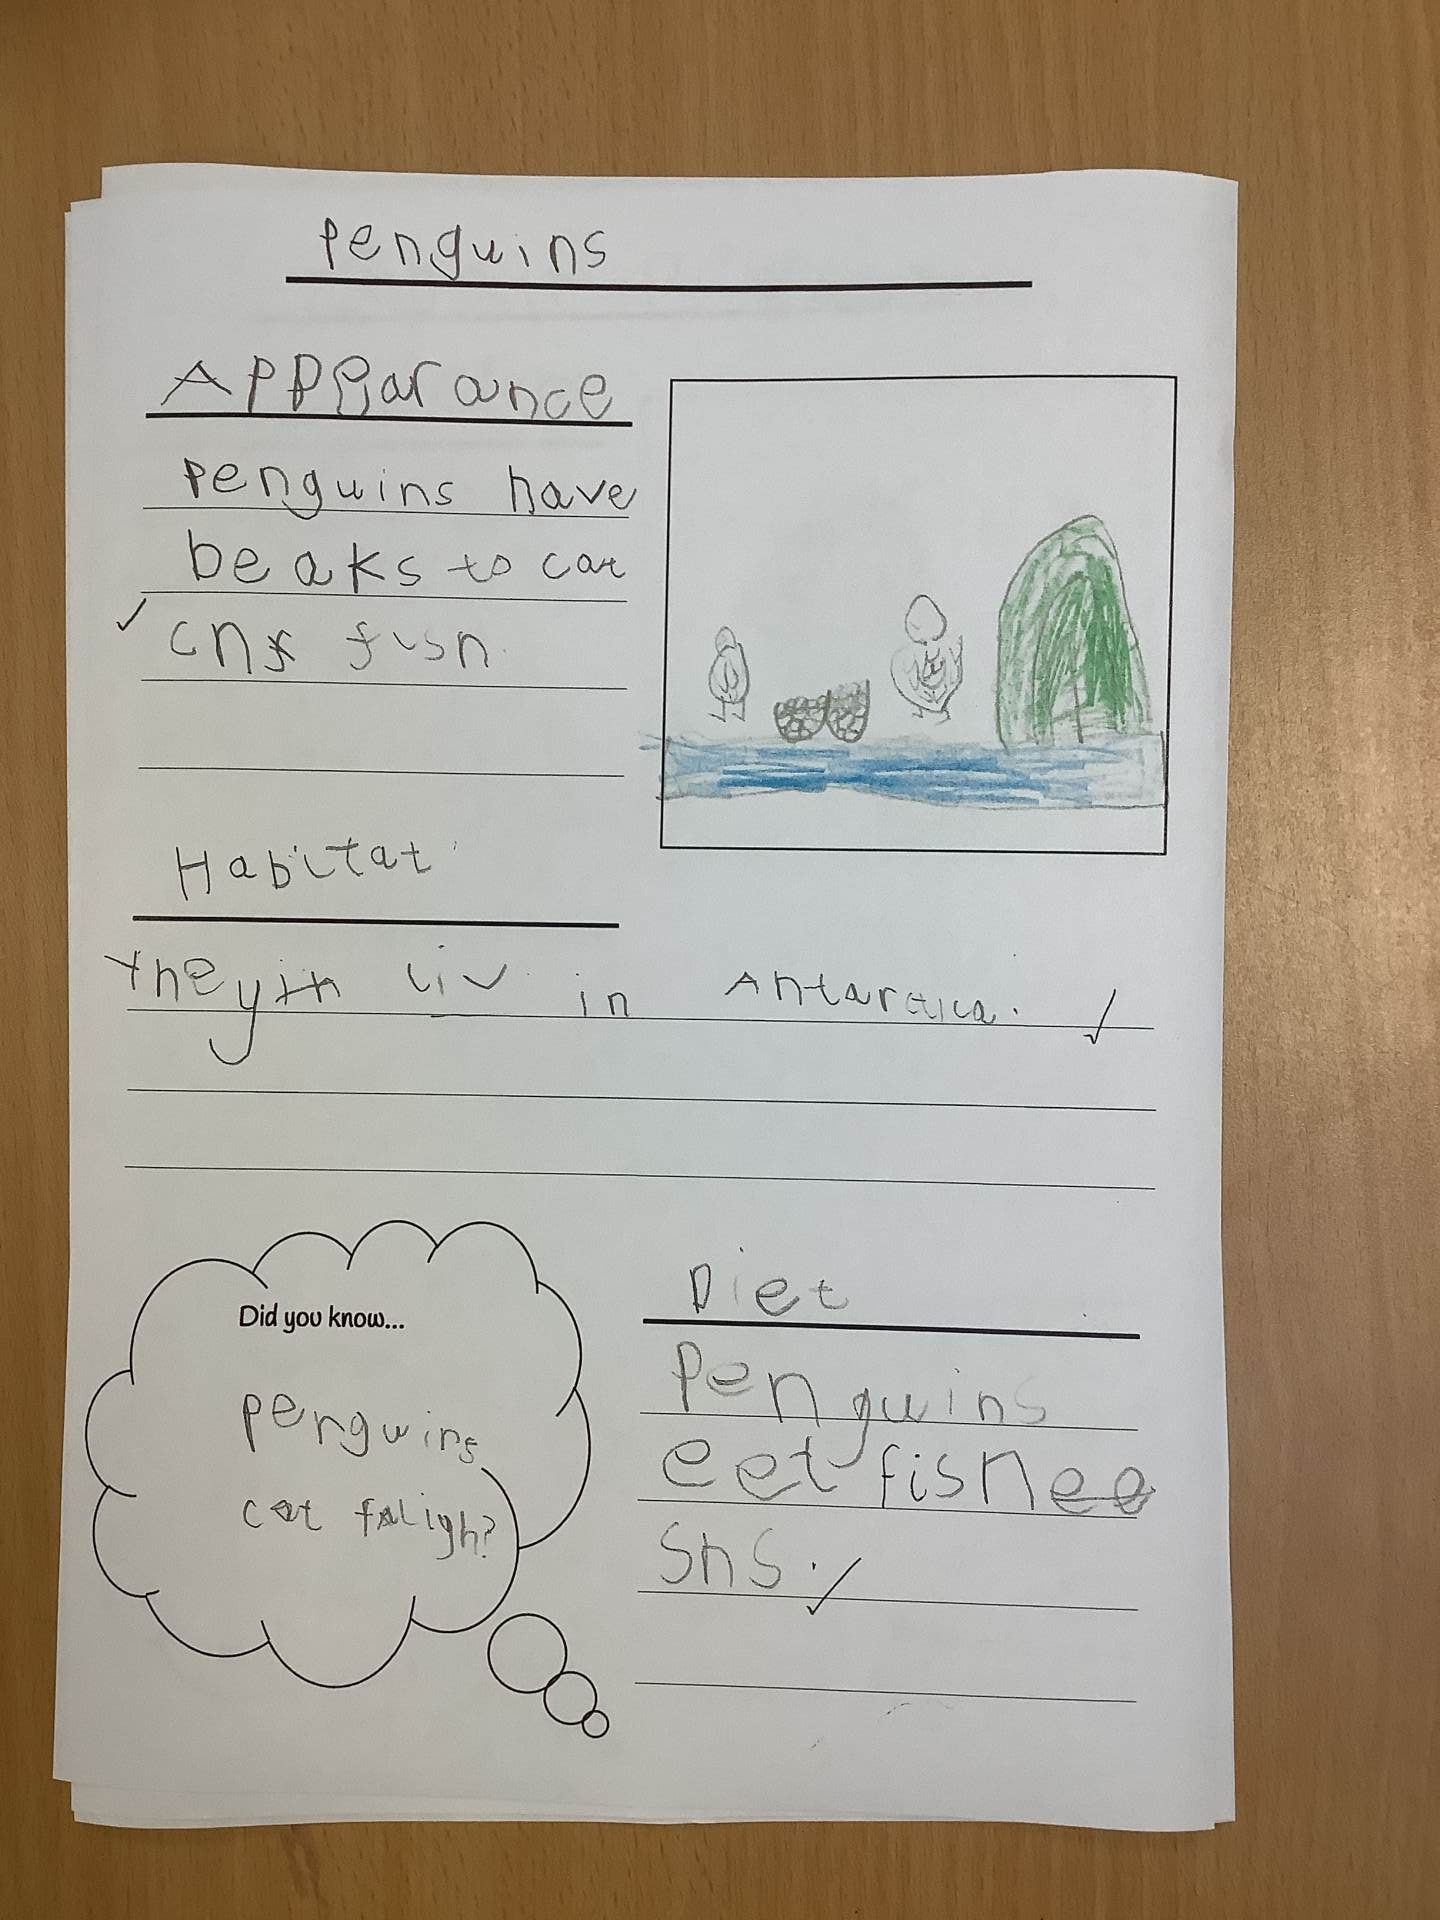 Penguins
Appearance
Penguins have
beaks to cat
fish.
Habitat
they liv in Antarctica.
Did you know...
penguins
cat faligh?
Diet
Penguins
eet fishee
shs.